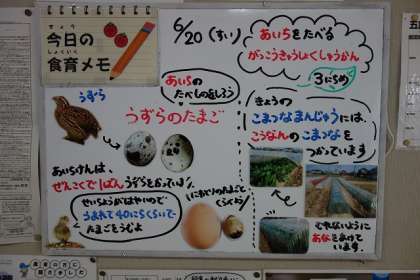 きょう
今日の
しょくいく
食育メモ
6/20（すい）
あいちをたべる
がっこうきゅうしょくしゅうかん
3にちめ
あいちの
たべものをしろう
うずら
うずらのたまご
きょうの
こまつなまんじゅうには、
こうなんのこまつなを
つかっています
あいちけんは、
ぜんこくで1ばんうずらをかっている！
せいちょうがはやいので
うまれて40にちくらいで
たまごをうむよ
にわとりのたまごと
くらべると
むれないように
あなをあけて
います。